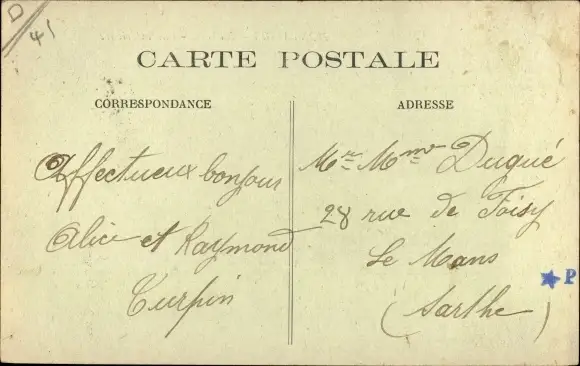 D
41
CARTE POSTALE
CORRESPONDANCE
ADRESSE
Affectueux bonjour
Alice et Raymond
Turpin
Mr Mme Duqué
28 rue de Foisy
Le Mans
(Sarthe)
P